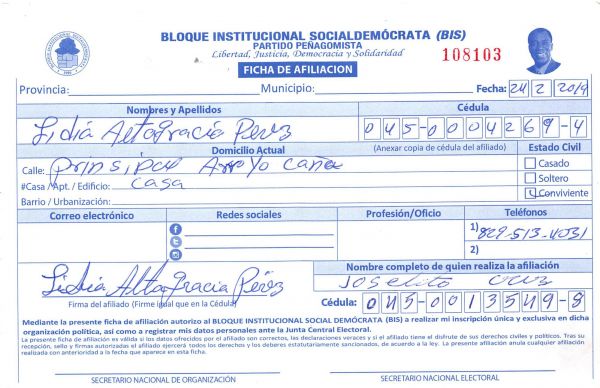 BLOQUE INSTITUCIONAL SOCIALDEMÓCRATA (BIS)
PARTIDO PEÑAGOMISTA
Libertad, Justicia, Democracia y Solidaridad
108103
FICHA DE AFILIACION
Provincia: Municipio: Fecha: 24 2 2019
Nombres y Apellidos Cédula
Lidia Altagracia Pérez 045-0004269-4
Domicilio Actual (Anexar copia de cédula del afiliado) Estado Civil
Calle: prinsipal Arroyo caña Casado
#Casa /Apt. / Edificio: casa Soltero
Barrio / Urbanización: Conviviente
Correo electrónico Redes sociales Profesión/Oficio Teléfonos
1) 829-513-4031
2)
Lidia Altagracia Pérez
Nombre completo de quien realiza la afiliación
Joselito cruz
Firma del afiliado (Firme igual que en la Cédula) Cédula: 045-0013549-8
Mediante la presente ficha de afiliación autorizo al BLOQUE INSTITUCIONAL SOCIAL DEMÓCRATA (BIS) a realizar mi inscripción única y exclusiva en dicha
organización política, así como a registrar mis datos personales ante la Junta Central Electoral.
La presente ficha de afiliación es válida si los datos ofrecidos por el afiliado son correctos, las declaraciones veraces y si el afiliado tiene el disfrute de sus derechos civiles y políticos. Tras su
recepción, sello y firmas autorizadas el afiliado ejercerá todos los derechos y los deberes estatutariamente sancionados, de acuerdo a la ley. La presente afiliación anula cualquier afiliación
realizada con anterioridad a la fecha que aparece en esta ficha.
SECRETARIO NACIONAL DE ORGANIZACIÓN SECRETARIO NACIONAL ELECTORAL